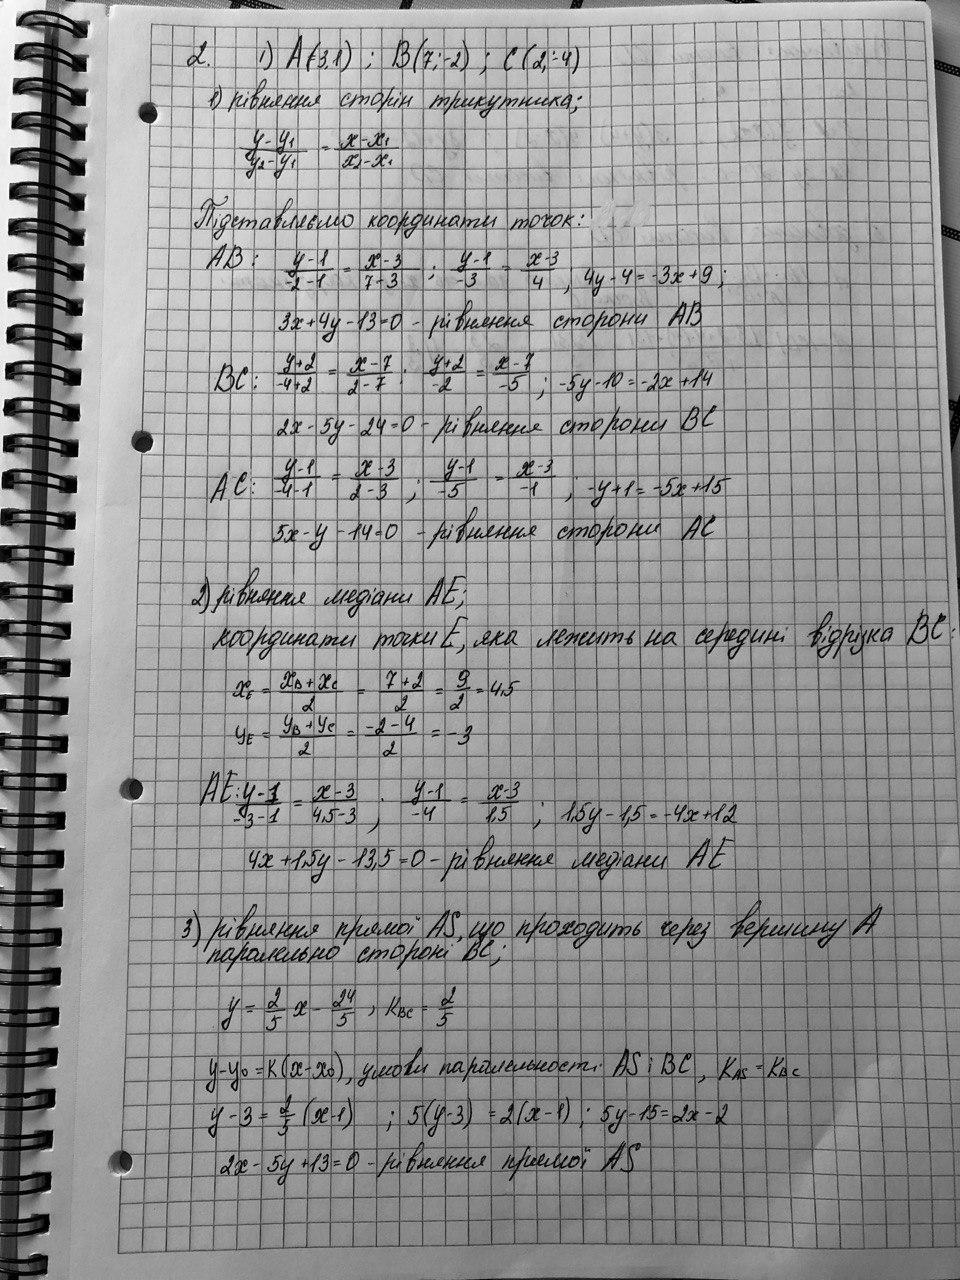 2. 1) A(3,1) ; B(7;-2) ; C(2;-4)
1) рівняння сторін трикутника;
(y-y₁)/(y₂-y₁) = (x-x₁)/(x₂-x₁)
Підставляємо координати точок:
AB: (y-1)/(-2-1) = (x-3)/(7-3) ; (y-1)/(-3) = (x-3)/4 , 4y-4=-3x+9;
3x+4y-13=0 - рівняння сторони AB
BC: (y+2)/(-4+2) = (x-7)/(2-7) ; (y+2)/(-2) = (x-7)/(-5) ; -5y-10=-2x+14
2x-5y-24=0 - рівняння сторони BC
AC: (y-1)/(-4-1) = (x-3)/(2-3) ; (y-1)/(-5) = (x-3)/(-1) ; -y+1=-5x+15
5x-y-14=0 - рівняння сторони AC
2) рівняння медіани AE;
координати точки E, яка лежить на середині відрізка BC:
x_E = (x_B+x_C)/2 = (7+2)/2 = 9/2 = 4,5
y_E = (y_B+y_C)/2 = (-2-4)/2 = -3
AE: (y-1)/(-3-1) = (x-3)/(4,5-3) ; (y-1)/(-4) = (x-3)/1,5 ; 1,5y-1,5=-4x+12
4x+1,5y-13,5=0 - рівняння медіани AE
3) рівняння прямої AS, що проходить через вершину A
паралельно стороні BC;
y = 2/5 x - 24/5 , K_BC = 2/5
y-y₀=K(x-x₀), умови паралельності AS і BC, K_AS = K_BC
y-3 = 2/5 (x-1) ; 5(y-3) = 2(x-1) ; 5y-15=2x-2
2x-5y+13=0 - рівняння прямої AS